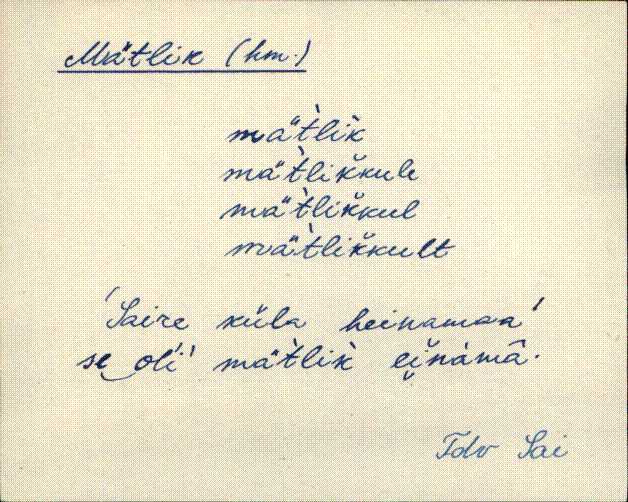 Mätlik (hm.)
mät̀lik̀
mät̀lik̆kule
mät̀lik̆kul
mät̀lik̆kult
'Saire küla heinamaa'
se‿ol'i' mät̀lik̀ ei̯nämâ.
Tdv Sai